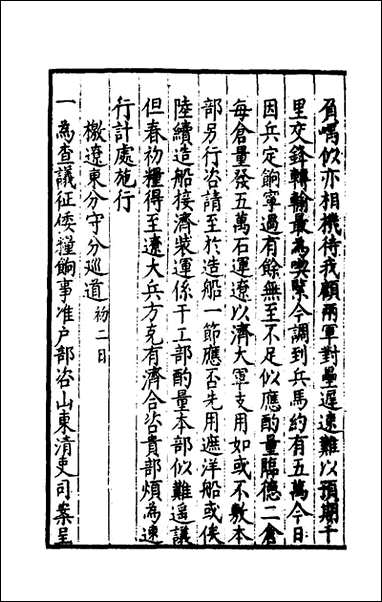 負嵎似亦相機待我顧兩軍對壘遲速難以預期千
里交鋒轉輸最為喫緊今調到兵馬約有五萬今日
因兵定餉寧過有餘無至不足似應酌量臨德二倉
每倉量發五萬石運遼以濟大軍支用如或不敷本
部另行咨請至於造船一節應否先用遮洋船或俟
陸續造船接濟裝運係干工部酌量本部似難遥議
但春初糧得至遼大兵方克有濟合咨貴部煩為速
行計處施行
檄遼東分守分巡道 初二日
一為查議征倭糧餉事准户部咨山東清吏司案呈